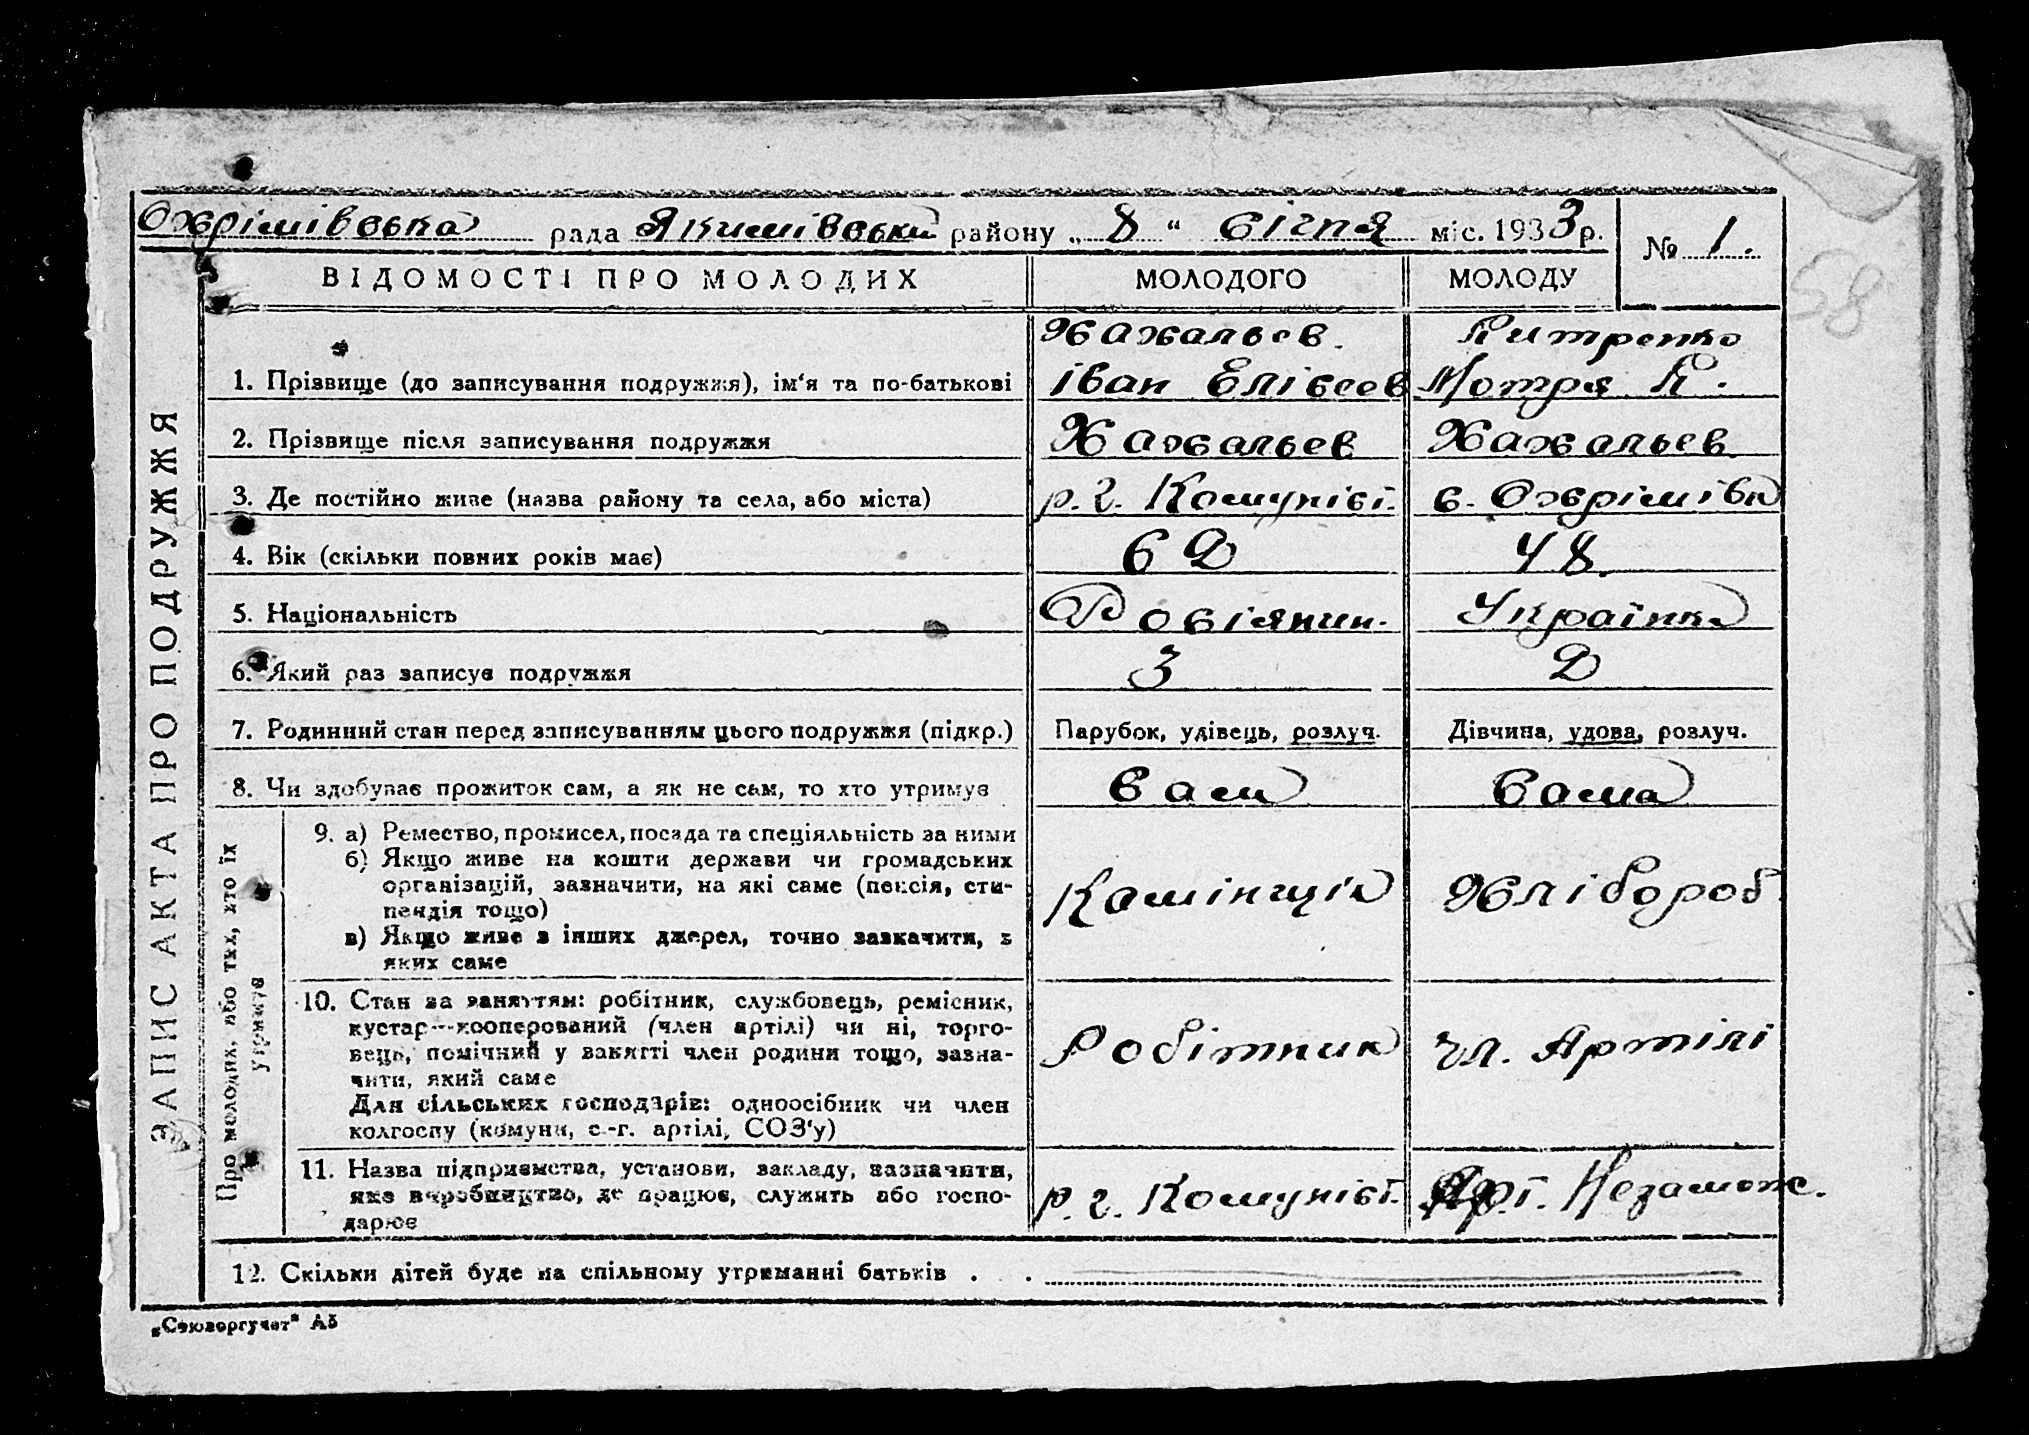 Охрімівська рада Якимівськи району „ 8 “ січня міс. 1933 р. № 1.
58
ВІДОМОСТІ ПРО МОЛОДИХ МОЛОДОГО МОЛОДУ
ЗАПИС АКТА ПРО ПОДРУЖЖЯ
1. Прізвище (до записування подружжя), ім‘я та по-батькові Іван Елісеев Мотря
2. Прізвище після записування подружжя
3. Де постійно живе (назва району та села, або міста) р. г. Комуніст. с. Охрімівка
4. Вік (скільки повних років має) 62 48.
5. Національність Росіянин. Українка
6. Який раз записує подружжя 3 2
7. Родинний стан перед записуванням цього подружжя (підкр.) Парубок, удівець, розлуч. Дівчина, удова, розлуч.
8. Чи здобуває прожиток сам, а як не сам, то хто утримує сам сама
Про молодих, або тих, хто їх
утримує
9. а) Ремество, промисел, посада та спеціяльність за ними
б) Якщо живе на кошти держави чи громадських
організацій, зазначити, на які саме (пенсія, сти-
пендія тощо) Камінщік Хлібороб
в) Якщо живе з інших джерел, точно зазначити, з
яких саме
10. Стан за заняттям: робітник, службовець, ремісник,
кустар—кооперований (член артілі) чи ні, торго-
вець, помічний у занятті член родини тощо, зазна- Робітник чл. Артілі
чити, який саме
Для сільських господарів: одноосібник чи член
колгоспу (комуни, с.-г. артілі, СОЗ‘у)
11. Назва підприємства, установи, закладу, зазначити,
яке виробництво, де працює, служить або госпо- р. г. Комуніст. Арт. Незаможс.
дарює
12. Скільки дітей буде на спільному утриманні батьків . .
„Союзоргучет“ А5